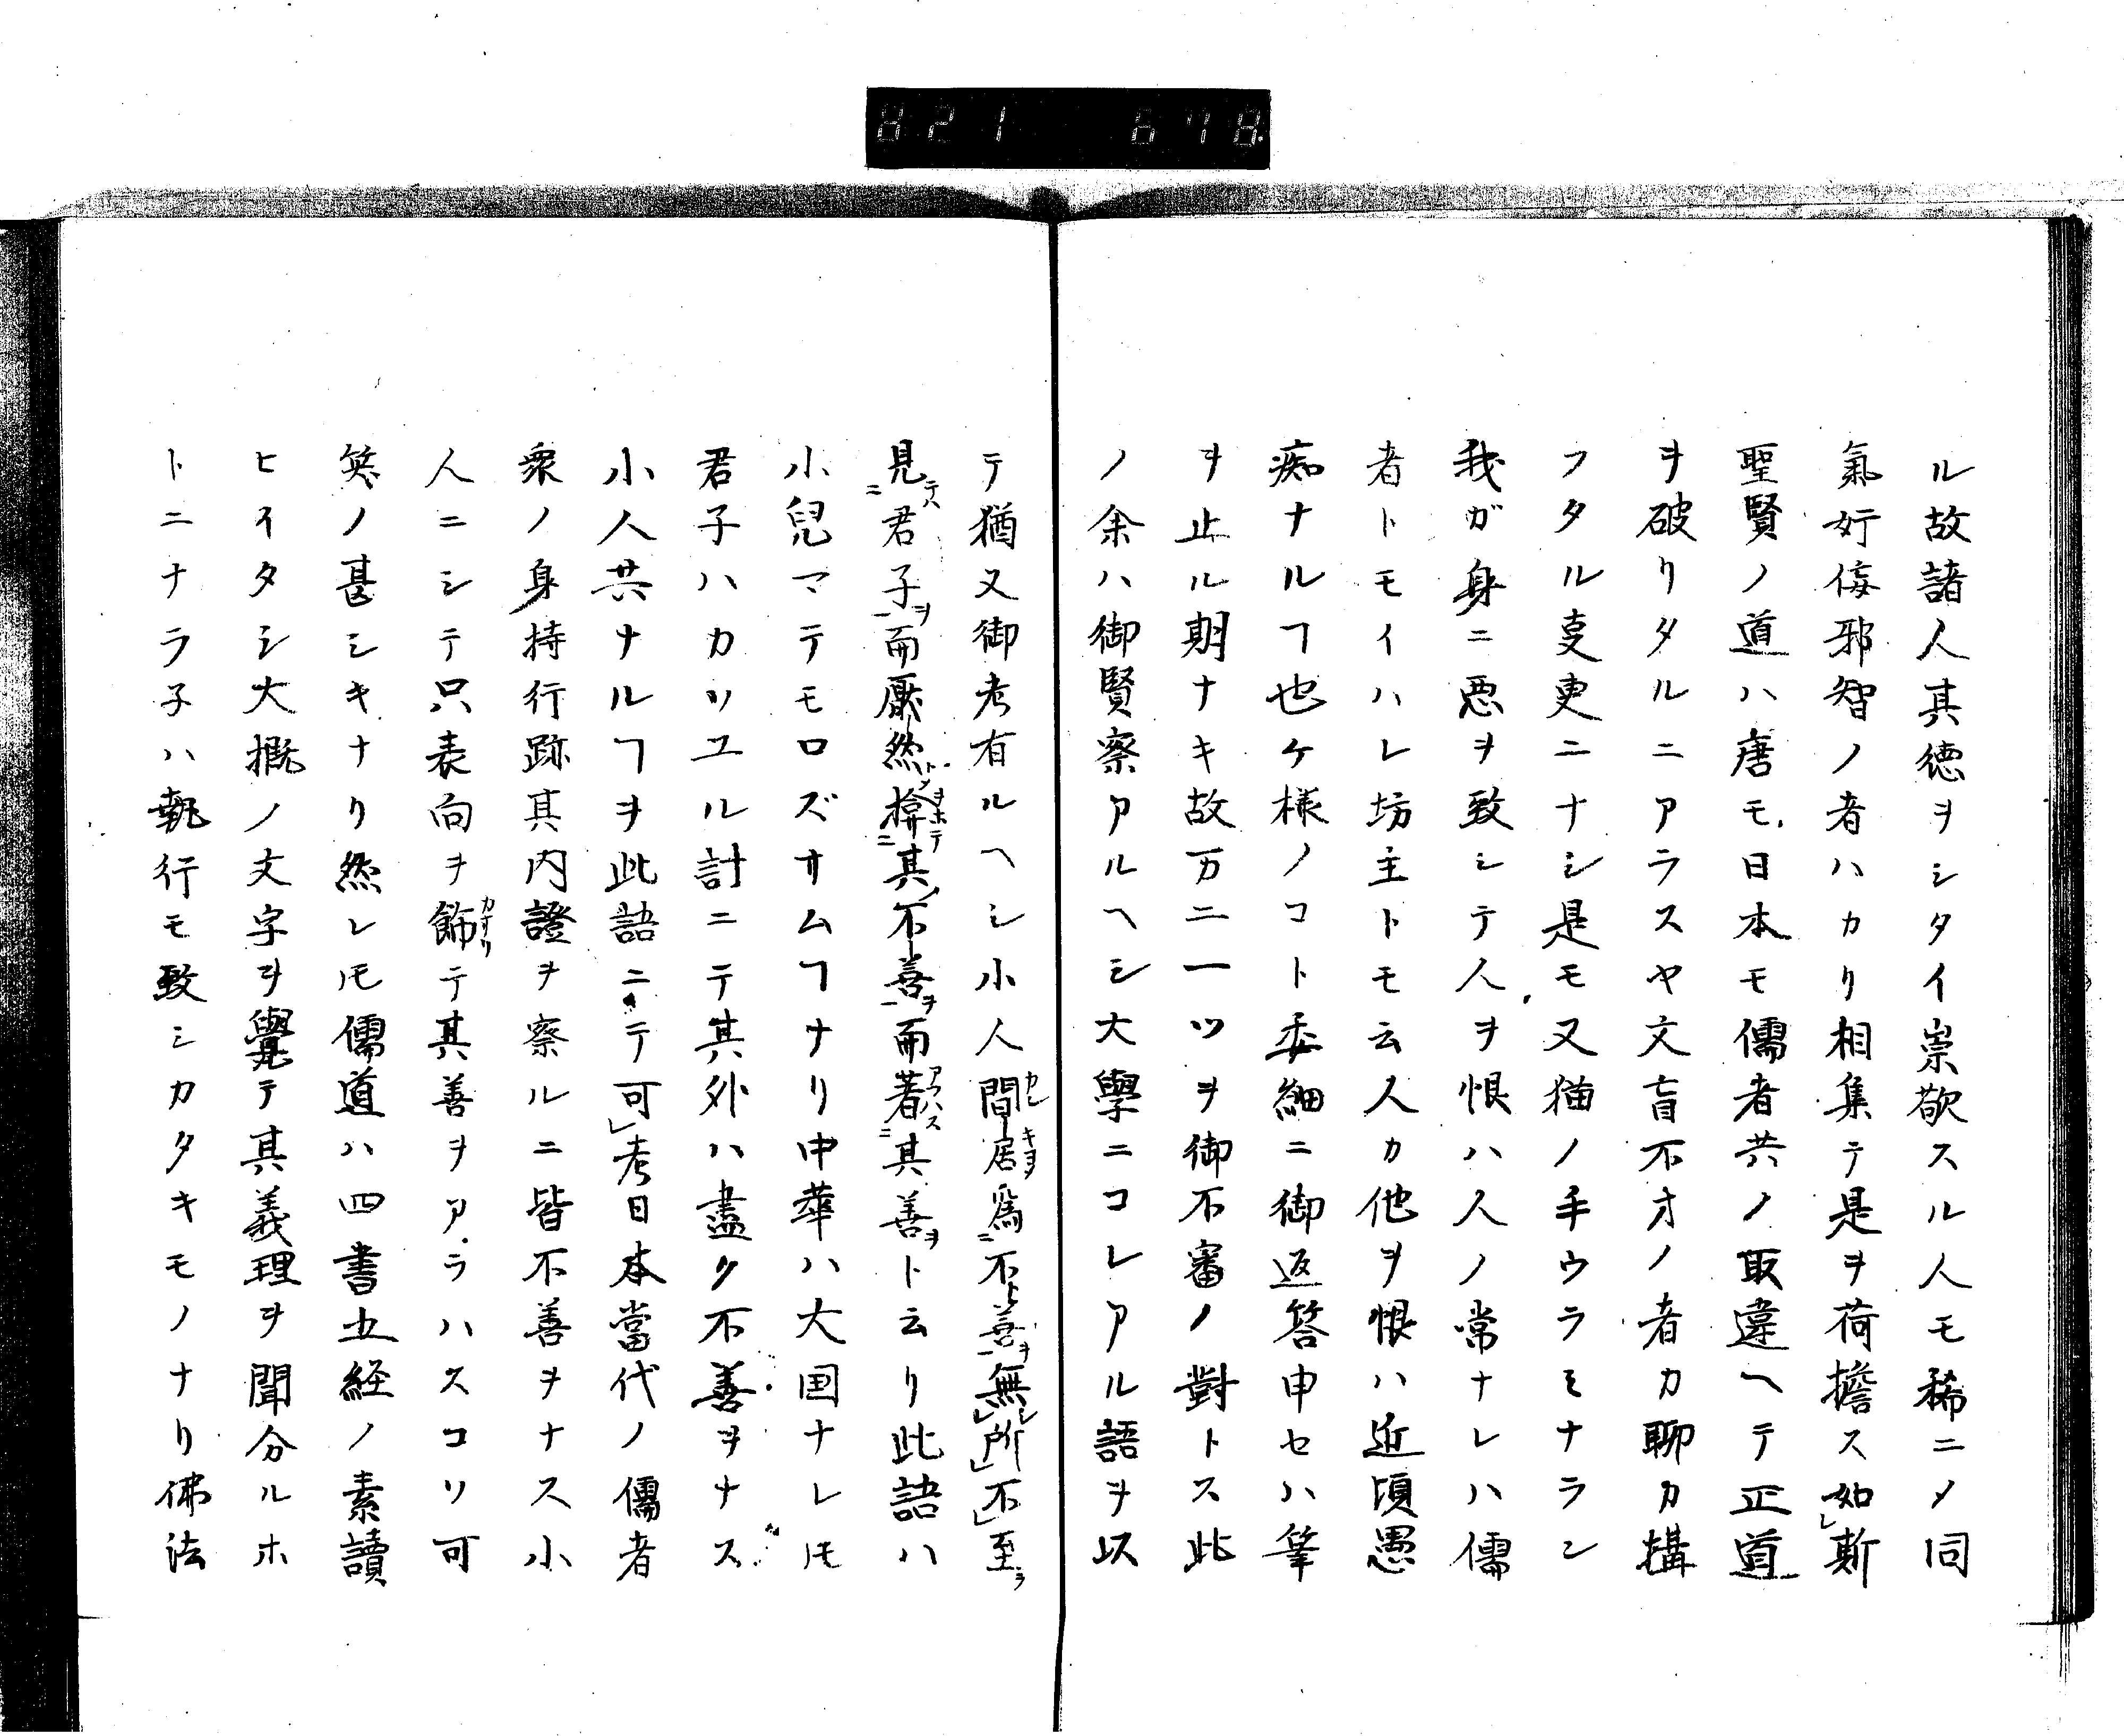 821 678
ル故諸人其徳ヲシタイ崇敬スル人モ稀ニメ同
氣奸侫邪智ノ者ハカリ相集テ是ヲ荷擔ス如レ斯
聖賢ノ道ハ唐モ日本モ儒者共ノ取違ヘテ正道
ヲ破リタルニアラスヤ文盲不才ノ者カ聊カ搆
フタル叓更ニナシ是モ又猫ノ手ウラミナラン
我ガ身ニ悪ヲ致シテ人ヲ恨ハ人ノ常ナレハ儒
者トモイハレ坊主トモ云人カ他ヲ恨ハ近頃愚
痴ナルヿ也ケ様ノコト委細ニ御返答申セハ筆
ヲ止ル期ナキ故万ニ一ツヲ御不審ノ對トス此
ノ余ハ御賢察アルヘシ大學ニコレアル語ヲ以
テ猶又御考有ルヘシ小人間居爲二不善一ヲ無レ所レ不レ至ヲ
見二テハ君子一ヲ而厭然トメ揜二ヲホテ其ノ不善一ヲ而著二アラハス其善一ヲト云リ此語ハ
小兒マテモロズサムヿナリ中華ハ大国ナレ𪜈
君子ハカツユル計ニテ其外ハ盡ク不善ヲナス
小人共ナルヿヲ此語ニテ可レ考日本當代ノ儒者
衆ノ身持行跡其内證ヲ察ルニ皆不善ヲナス小
人ニシテ只表向ヲ飾カサリテ其善ヲアラハスコソ可
笑ノ甚シキナリ然レ𪜈儒道ハ四書五経ノ素讀
ヒイタシ大概ノ文字ヲ覺テ其義理ヲ聞分ルホ
トニナラ子ハ執行モ致シカタキモノナリ佛法